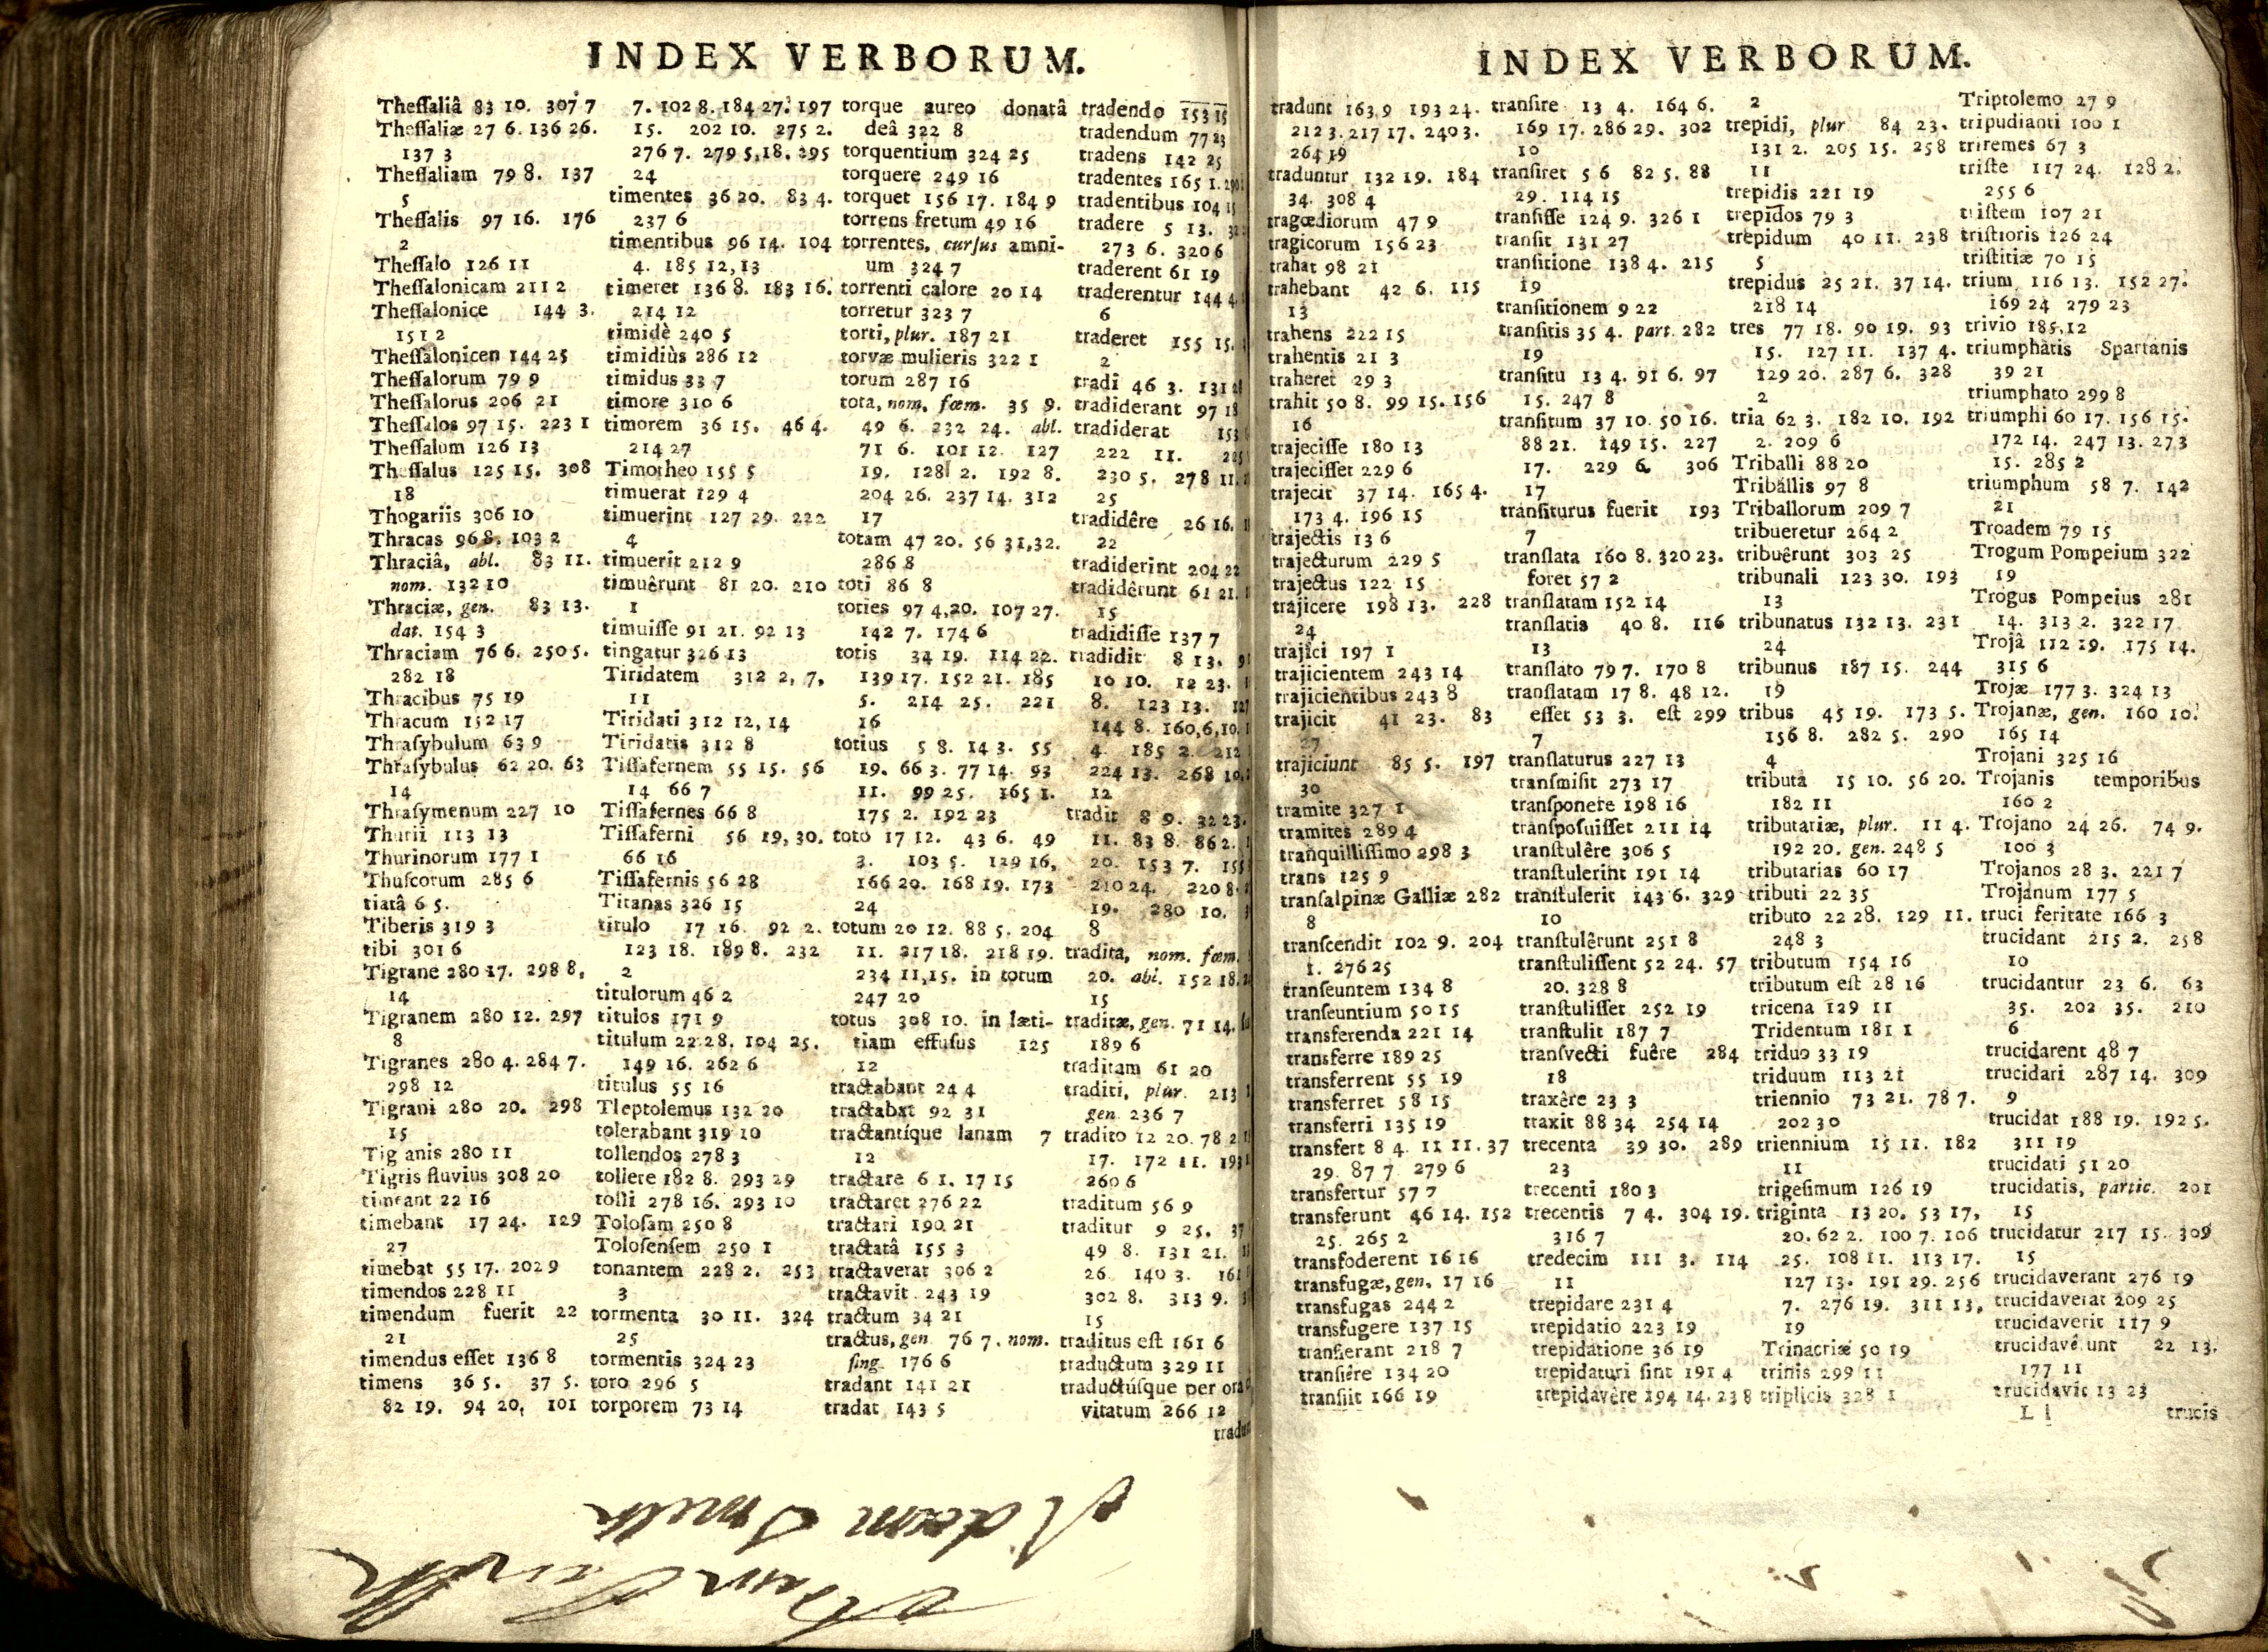 INDEX VERBORUM.
Theſſaliâ 83 10. 307 7
Theſſaliæ 27 6. 136 26.
137 3
Theſſaliam 79 8. 137
5
Theſſalis 97 16. 176
2
Theſſalo 126 11
Theſſalonicam 211 2
Theſſalonice 144 3.
151 2
Theſſalonicen 144 25
Theſſalorum 79 9
Theſſalorus 206 21
Theſſalos 97 15. 223 1
Theſſalum 126 13
Theſſalus 125 15. 308
18
Thogariis 306 10
Thracas 96 8. 103 2
Thraciâ, abl. 83 11.
nom. 132 10
Thraciæ, gen. 83 13.
dat. 154 3
Thraciam 76 6. 250 5.
282 18
Thracibus 75 19
Thracum 152 17
Thraſybulum 63 9
Thraſybulus 62 20. 63
14
Thraſymenum 227 10
Thurii 113 13
Thurinorum 177 1
Thuſcorum 285 6
tiatâ 6 5.
Tiberis 319 3
tibi 301 6
Tigrane 280 17. 298 8,
14
Tigranem 280 12. 297
8
Tigranes 280 4. 284 7.
298 12
Tigrani 280 20. 298
15
Tig anis 280 11
Tigris fluvius 308 20
timeant 22 16
timebant 17 24. 129
27
timebat 55 17. 202 9
timendos 228 11
timendum fuerit 22
21
timendus eſſet 136 8
timens 36 5. 37 5.
82 19. 94 20, 101
7. 102 8. 184 27. 197
15. 202 10. 275 2.
276 7. 279 5,18. 295
24
timentes 36 20. 83 4.
237 6
timentibus 96 14. 104
4. 185 12,13
timeret 136 8. 183 16.
214 12
timidè 240 5
timidiùs 286 12
timidus 33 7
timore 310 6
timorem 36 15. 46 4.
214 27
Timotheo 155 5
timuerat 129 4
timuerint 127 29. 222
4
timuerit 212 9
timuêrunt 81 20. 210
1
timuiſſe 91 21. 92 13
tingatur 326 13
Tiridatem 312 2, 7,
11
Tiridati 312 12, 14
Tiridatis 312 8
Tiſſafernem 55 15. 56
14 66 7
Tiſſafernes 66 8
Tiſſaferni 56 19, 30.
66 16
Tiſſafernis 56 28
Titanas 326 15
titulo 17 16. 92 2.
123 18. 189 8. 232
2
titulorum 46 2
titulos 171 9
titulum 22 28. 104 25.
149 16. 262 6
titulus 55 16
Tleptolemus 132 20
tolerabant 319 10
tollendos 278 3
tollere 182 8. 293 29
tolli 278 16. 293 10
Toloſam 250 8
Toloſenſem 250 1
tonantem 228 2. 253
3
tormenta 30 11. 324
25
tormentis 324 23
toro 296 5
torporem 73 14
torque aureo donatâ
deâ 322 8
torquentium 324 25
torquere 249 16
torquet 156 17. 184 9
torrens fretum 49 16
torrentes, curſus amni-
um 324 7
torrenti calore 20 14
torretur 323 7
torti, plur. 187 21
torvæ mulieris 322 1
torum 287 16
tota, nom, fœm. 35 9.
49 6. 232 24. abl.
71 6. 101 12. 127
19. 128 2. 192 8.
204 26. 237 14. 312
17
totam 47 20. 56 31,32.
286 8
toti 86 8
toties 97 4,20. 107 27.
142 7. 174 6
totis 34 19. 114 22.
139 17. 152 21. 185
5. 214 25. 221
16
totius 5 8. 14 3. 55
19. 66 3. 77 14. 93
11. 99 25. 165 1.
175 2. 192 23
toto 17 12. 43 6. 49
3. 103 5. 129 16,
166 20. 168 19. 173
24
totum 20 12. 88 5. 204
11. 217 18. 218 19.
234 11,15. in totum
247 20
totus 308 10. in læti-
tiam effuſus 125
12
tractabant 24 4
tractabat 92 31
tractantíque lanam 7
12
tractare 6 1. 17 15
tractaret 276 22
tractari 190 21
tractatâ 155 3
tractaverat 306 2
tractavit 243 19
tractum 34 21
tractus, gen 76 7. nom.
ſing. 176 6
tradant 141 21
tradat 143 5
tradendo 153 15
tradendum 77 23
tradens 142 25
tradentes 165 1.
tradentibus 104 15
tradere 5 13.
273 6. 320 6
traderent 61 19
traderentur 144 4.
6
traderet 155 15.
2
tradi 46 3. 131
tradiderant 97 18
tradiderat 153
222 11.
230 5. 278 11.
25
tradidêre 26 16.
22
tradiderint 204 22
tradidêrunt 61 21.
15
tradidiſſe 137 7
tradidit 8 13.
10 10. 12 23.
8. 123 13.
144 8. 160,6,10.
4. 185 2. 212
224 13. 268 10.
12
tradit 8 9. 32 23.
11. 83 8. 86 2.
20. 153 7.
210 24. 220 8.
19. 280 10.
8
tradita, nom. fœm.
20. abl. 152 18.
15
traditæ, gen. 71 14.
189 6
traditam 61 20
traditi, plur. 213
gen. 236 7
tradito 12 20. 78 2
17. 172 11. 193
260 6
traditum 56 9
traditur 9 25. 37
49 8. 131 21.
26 140 3. 161
302 8. 313 9.
15
traditus eſt 161 6
traductum 329 11
traductúſque per ora
vitatum 266 12
Adam Smith
INDEX VERBORUM.
tradunt 163 9 193 24.
212 3. 217 17. 240 3.
264 19
traduntur 132 19. 184
34. 308 4
tragœdiorum 47 9
tragicorum 156 23
trahat 98 21
trahebant 42 6. 115
13
trahens 222 15
trahentis 21 3
traheret 29 3
trahit 50 8. 99 15. 156
16
trajeciſſe 180 13
trajeciſſet 229 6
trajecit 37 14. 165 4.
173 4. 196 15
trajectis 13 6
trajecturum 229 5
trajectus 122 15
trajicere 198 13. 228
24
trajici 197 1
trajicientem 243 14
trajicientibus 243 8
trajicit 41 23. 83
27
trajiciunt 85 5. 197
30
tramite 327 1
tramites 289 4
tranquilliſſimo 298 3
trans 125 9
tranſalpinæ Galliæ 282
8
tranſcendit 102 9. 204
1. 276 25
tranſeuntem 134 8
tranſeuntium 50 15
transferenda 221 14
transferre 189 25
transferrent 55 19
transferret 58 15
transferri 135 19
transfert 8 4. 11 11. 37
29. 87 7. 279 6
transfertur 57 7
transferunt 46 14. 152
25. 265 2
transfoderent 16 16
transfugæ, gen. 17 16
transfugas 244 2
transfugere 137 15
tranſierant 218 7
tranſiêre 134 20
tranſiit 166 19
tranſire 13 4. 164 6.
169 17. 286 29. 302
10
tranſiret 5 6 82 5. 88
29. 114 15
tranſiſſe 124 9. 326 1
tranſit 131 27
tranſitione 138 4. 215
19
tranſitionem 9 22
tranſitis 35 4. part. 282
19
tranſitu 13 4. 91 6. 97
15. 247 8
tranſitum 37 10. 50 16.
88 21. 149 15. 227
17. 229 6. 306
17
tranſiturus fuerit 193
7
tranſlata 160 8. 320 23.
foret 57 2
tranſlatam 152 14
tranſlatis 40 8. 116
13
tranſlato 79 7. 170 8
tranſlatam 17 8. 48 12.
eſſet 53 3. eſt 299
7
tranſlaturus 227 13
tranſmiſit 273 17
tranſponere 198 16
tranſpoſuiſſet 211 14
tranſtulêre 306 5
tranſtulerint 191 14
tranſtulerit 143 6. 329
10
tranſtulêrunt 251 8
tranſtuliſſent 52 24. 57
20. 328 8
tranſtuliſſet 252 19
tranſtulit 187 7
tranſvecti fuêre 284
18
traxêre 23 3
traxit 88 34 254 14
trecenta 39 30. 289
23
trecenti 180 3
trecentis 7 4. 304 19.
316 7
tredecim 111 3. 114
11
trepidare 231 4
trepidatio 223 19
trepidatione 36 19
trepidaturi ſint 191 4
trepidavêre 194 14. 238
2
trepidi, plur 84 23.
131 2. 205 15. 258
11
trepidis 221 19
trepidos 79 3
trepidum 40 11. 238
5
trepidus 25 21. 37 14.
218 14
tres 77 18. 90 19. 93
15. 127 11. 137 4.
129 20. 287 6. 328
2
tria 62 3. 182 10. 192
2. 209 6
Triballi 88 20
Triballis 97 8
Triballorum 209 7
tribueretur 264 2
tribuêrunt 303 25
tribunali 123 30. 193
13
tribunatus 132 13. 231
24
tribunus 187 15. 244
19
tribus 45 19. 173 5.
156 8. 282 5. 290
4
tributa 15 10. 56 20.
182 11
tributariæ, plur. 11 4.
192 20. gen. 248 5
tributarias 60 17
tributi 22 35
tributo 22 28. 129 11.
248 3
tributum 154 16
tributum eſt 28 16
tricena 129 11
Tridentum 181 1
triduo 33 19
triduum 113 21
triennio 73 21. 78 7.
202 30
triennium 15 11. 182
11
trigeſimum 126 19
triginta 13 20. 53 17,
20. 62 2. 100 7. 106
25. 108 11. 113 17.
127 13. 191 29. 256
7. 276 19. 311 13,
19
Trinacriæ 50 19
trinis 299 11
triplicis 328 1
Triptolemo 27 9
tripudianti 100 1
triremes 67 3
triſte 117 24. 128 2.
255 6
triſtem 107 21
triſtioris 126 24
triſtitiæ 70 15
trium 116 13. 152 27.
169 24 279 23
trivio 185,12
triumphatis Spartanis
39 21
triumphato 299 8
triumphi 60 17. 156 15.
172 14. 247 13. 273
15. 285 2
triumphum 58 7. 142
21
Troadem 79 15
Trogum Pompeium 322
19
Trogus Pompeius 281
14. 313 2. 322 17
Trojâ 112 19. 175 14.
315 6
Trojæ 177 3. 324 13
Trojanæ, gen. 160 10.
165 14
Trojani 325 16
Trojanis temporibus
160 2
Trojano 24 26. 74 9.
100 3
Trojanos 28 3. 221 7
Trojanum 177 5
truci feritate 166 3
trucidant 215 2. 258
10
trucidantur 23 6. 63
35. 202 35. 210
6
trucidarent 48 7
trucidari 287 14. 309
9
trucidat 188 19. 192 5.
311 19
trucidati 51 20
trucidatis, partic. 201
15
trucidatur 217 15. 309
15
trucidaverant 276 19
trucidaverat 209 25
trucidaverit 117 9
trucidavê unt 22 13.
177 11
trucidavit 13 23
L l trucis